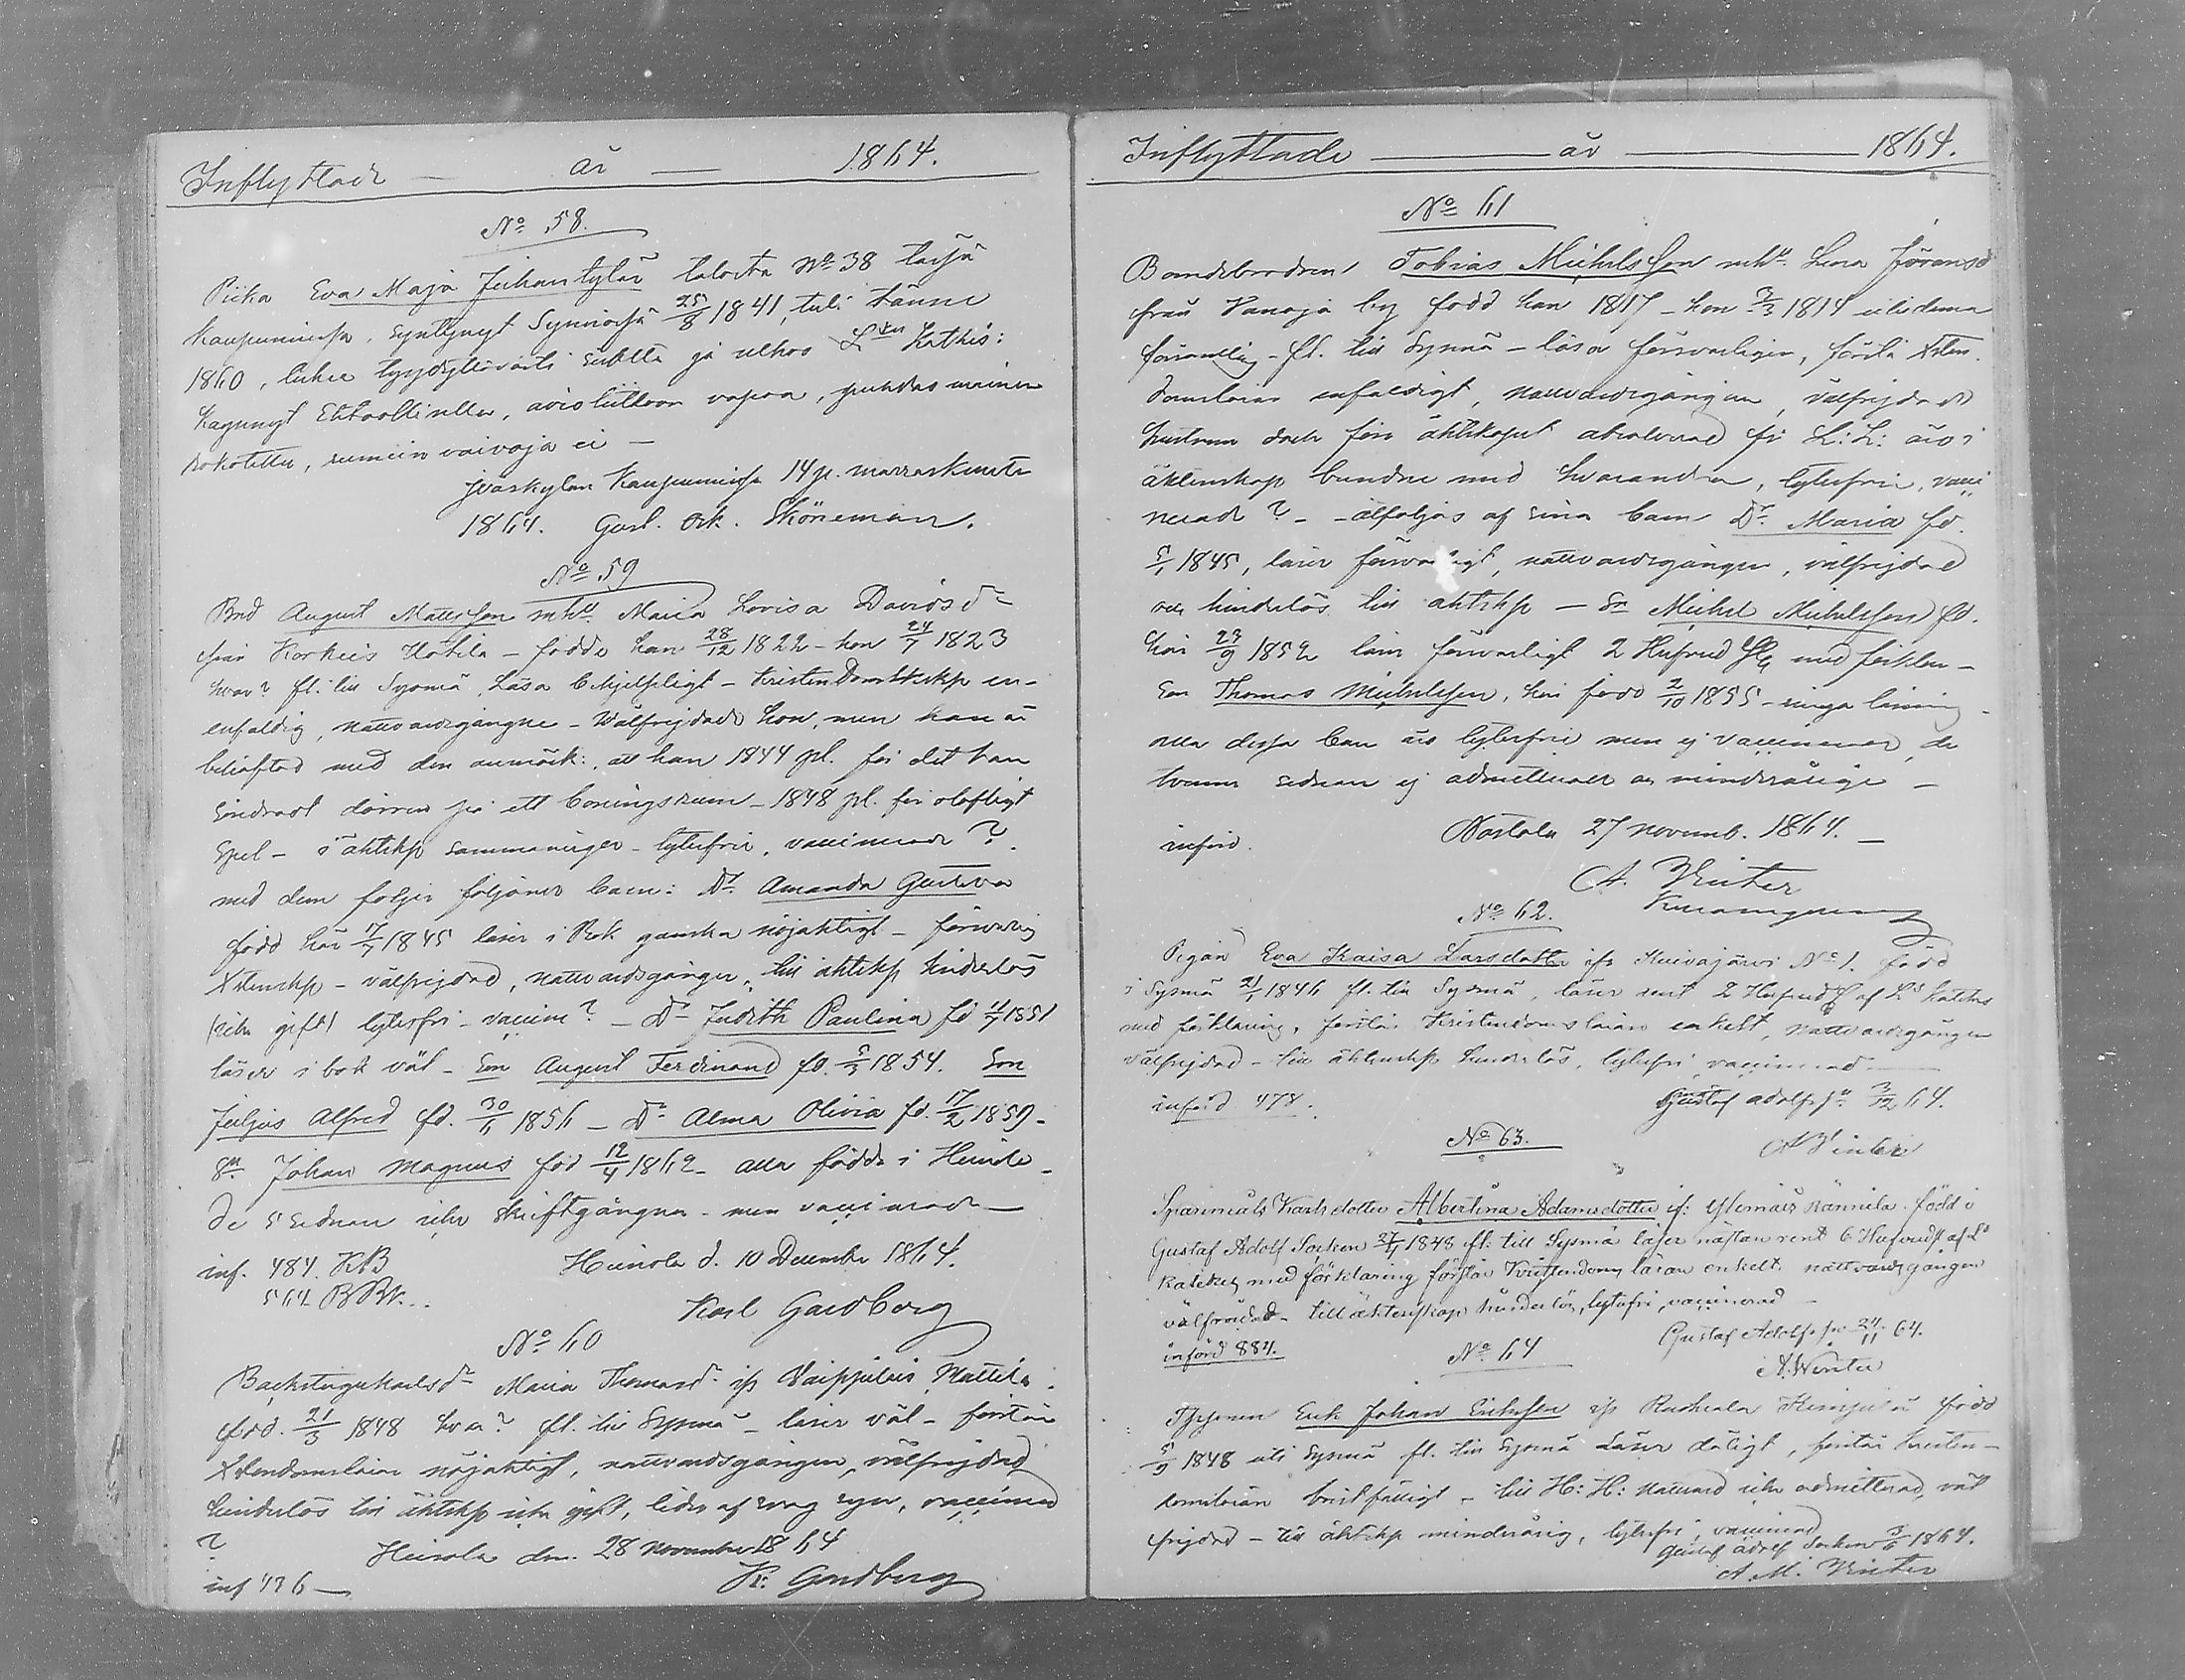 Inflyttade — år — 1864.
No 58.
Piika Eva Maja Juhantytär talosta No 38 tässä
kaupungissa, syntynyt Sysmässä 25/8 1841, tuli tänne
1860, lukee tyydyttävästi sisältä ja ulkoa Kathis:
käynynyt Ehtoollisella, avioliittoon vapaa,
rokotettu, ruumiin vaivoja ei —
Jyväskylän Kaupungissa 14 p. marraskuuta
1864. Gust. Ock. Sköneman.
No 59
Bnd August Mattsson mhu Maria Lovisa Davidsdr
från Korkeis Uotila — födde han 28/12 1822 - hon 24/7 1823
hvar? fl. till Sysmä, Läsa behjelpligt — Kristendomskskp en-
enfaldig, nattvardsgångne — Wälfrejdad hon, men han är
behäftad med den anmärk: att han 1844 pl. för det han
söndrat dörren på ett boningsrum — 1848 pl. för olofligt
Spel — i äktskp sammanviger — lytesfrie, vaccinerade?
med dem följer följande barn: Dr Amanda Gustava
född här 17/7 1845 läser i Bok ganska nöjaktigt — försvarlig
Xstenskp — välfrejdad, nattvardsgången, till äktskp hinderlös
(icke gift) lytesfri — vaccine? — Dr Judith Paulina fd 11/7 1851
läser i bok väl — Son August Ferdinand fd. 5/3 1854. Son
Juljus Alfred fd. 30/11 1856 — Dr Alma Olivia fd. 17/2 1859 -
Sn Johan Magnus föd 12/4 1862 — alla födda i Heinola -
de 5 sednare icke skriftgångna — men vaccinerade —
inf. 484. KB Heinola d. 10 December 1864.
564 BBk.. Karl Gardberg
No 60
Backstugukarlsdr Maria Thomasdr ifr. Vaippilais Mattila.
född. 21/3 1848 hvar? fl. till Sysmä — läser väl — förstår
Xstendomsläran nöjaktigt, nattvardsgången, välfrejdad
hinderlös till äktskp icke gift, lider af svag syn, vaccinerad
? Heinola den 28 November 1864
inf 436 — K: Gardberg
Inflyttade — år — 1864.
No 61
Bondebrodren Tobias Michelsson mhu. Lena Göransd
från Vanaja by född han 1817 — hon 3/3 1814 utidenna
församling — fl. till Sysmä — läsa försvarligen, förstå Xsten-
domsläran enfaldigt, nattvardsgångne, välfrejdade
hustrun dock före äktskapet absolverad för L: L: äro i
äktenskap bundne med hvarandra, lytesfrie, vacci
nerade? — åtföljas af sina barn Dr Maria fd.
5/1 1845, läser försvarligt, nattvardsgången, välfrejdad
och hinderlös till äktskp — Sn Michel Michelsson fd.
här 29/9 1852 läser försvarligt 2 Hufvud St med förklar —
Son Thomas Michelsson, här född 2/10 1855 — ringa läsning -
alla dessa barn äro lytesfrie men ej vaccinerade, de
tvenne sednare ej admitterade och minderårige —
införd. Nastola 27 novemb. 1864. —
A. Winter
No 62.
Pigan Eva Kaisa Larsdotter ifr Kuivajärvi No 1. född
i Sysmä 21/1 1846 fl. till Sysmä, läser rent 2 Hufvud St af Ls kateches
med förklaring, förstår Kristendomsläran enkelt, nattvardsgången
välfrejdad — till äktenskp hinderlös, lytesfri vaccinerad —
införd 478. Gustaf Adolfs sn 3/12 64.
No 63. A Winter
Sparfmåls Karlsdotter Albertina Adamsdotter if: Ylemäis Rännila. född i
Gustaf Adolf Socken 27/4 1848 fl: till Sysmä läser nästan rent 6 Hufvudst af Ls
Kateket med förklaring förstår Kristendoms läran enkelt. nattvards gången
välfräjdad — till äktenskap hinderlös, lytesfri, vaccinerad —
införd 884. Gustaf Adolfs sn 24/11 64.
No 64 A. Winter
Erik Johan Eriksson ifr Raskiala född
5/9 1848 uti Sysmä fl. till Sysmä Läser dåligt, förstår kristen-
domsläran bristfälligt — till H: H: Nattvard icke admitterad, väl
frejdad — till äktskp minderårig, lytesfri, vaccinerad
Gustaf Adolf Socken 1864.
A. M. Winter